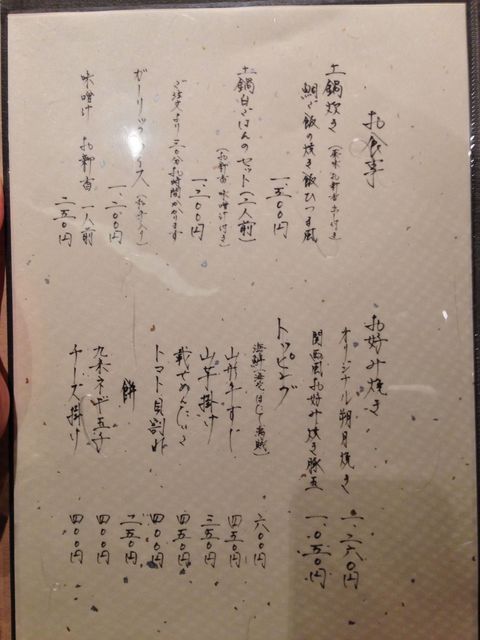 お食事
土鍋炊き
鯛ご飯の焼き飯ひつまぶし風
一、五〇〇円
土鍋白ごはんのセット(二人前)
(お新香 味噌汁付き)
一、二〇〇円
ご注文より三〇分お時間かかります
ガーリックライス
一、二〇〇円
味噌汁 お新香 一人前
二五〇円
お好み焼き
オリジナル朔月焼き 一、二六〇円
関西風お好み焼き豚玉 一、〇五〇円
トッピング
六〇〇円
山形牛すじ 四五〇円
山芋掛け 三五〇円
載せめんたいこ 四五〇円
トマト 四〇〇円
餅 二五〇円
九条ネギ玉子 四〇〇円
チーズ掛け 四〇〇円